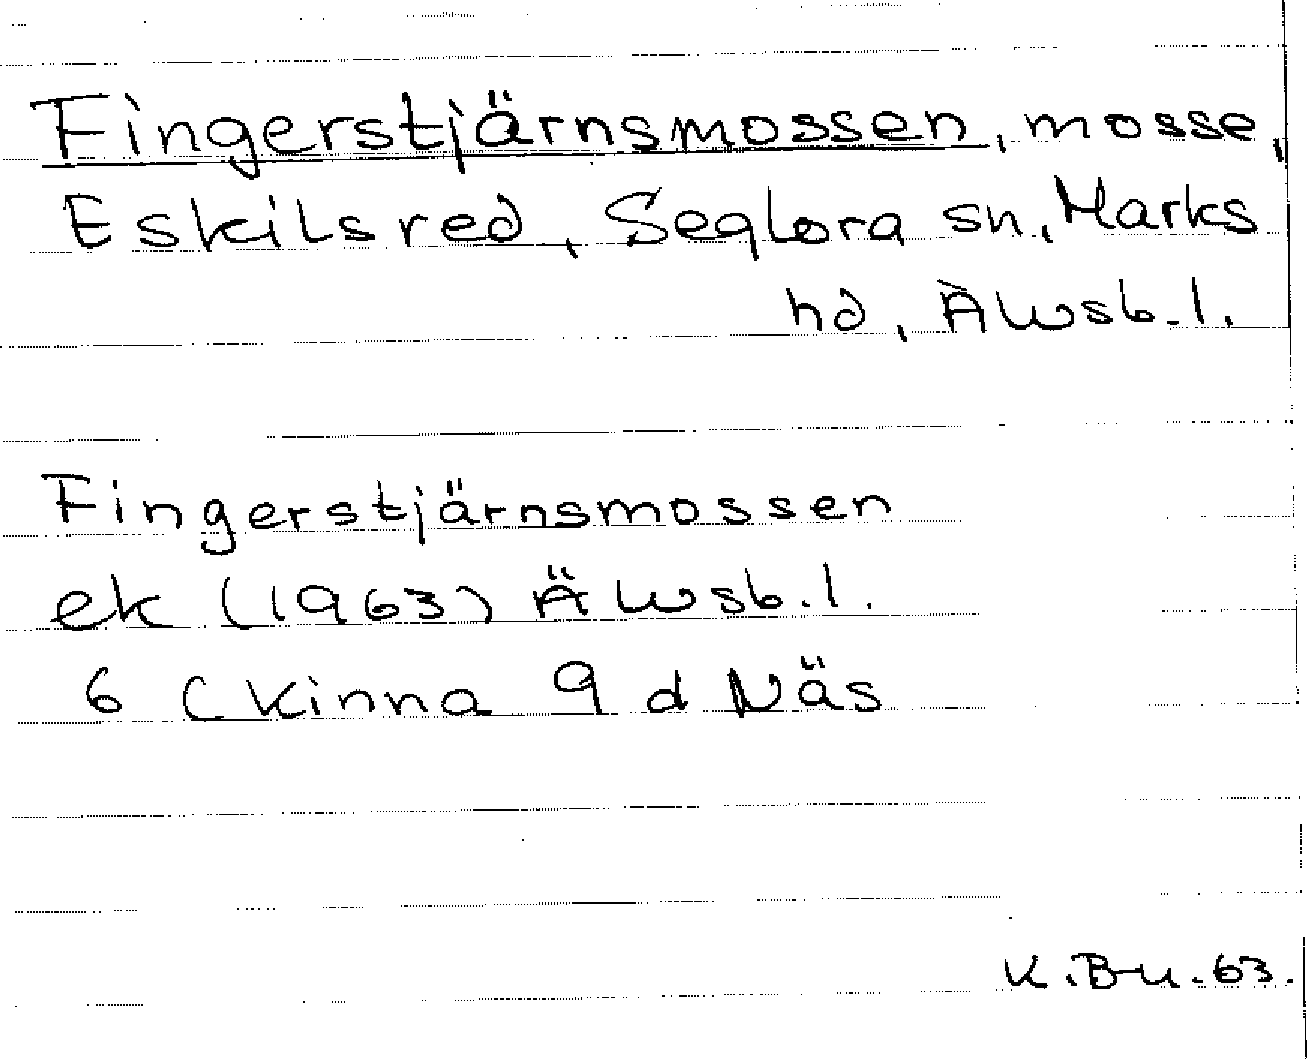 Fingerstjärnsmossen, mosse,
Eskilsred, Seglora sn, Marks
hd, Älvsb. l.
Fingerstjärnsmossen
ek (1963) Älvsb. l.
6 C Kinna 9 d Näs
K. Bu. 63.